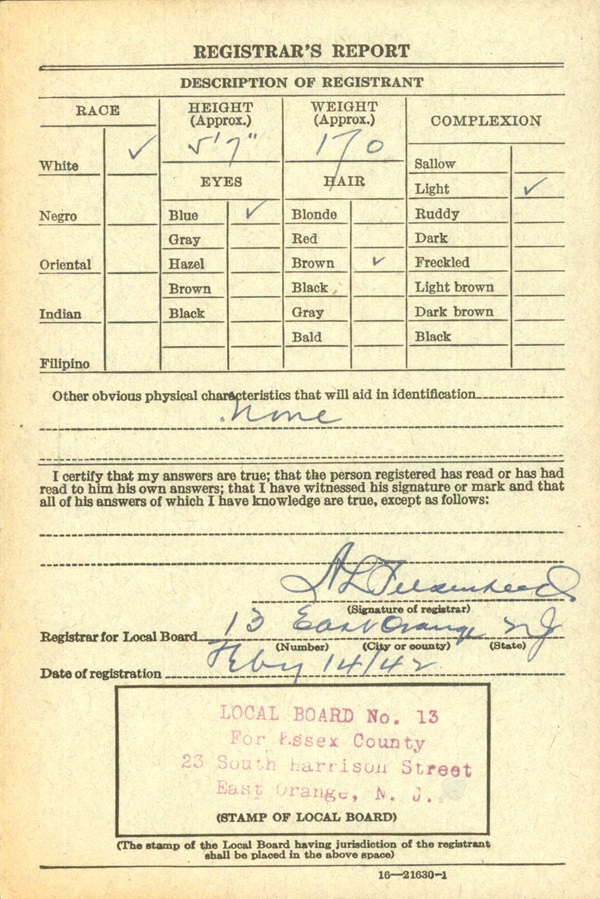 REGISTRAR'S REPORT
DESCRIPTION OF REGISTRANT
RACE
HEIGHT
(Approx.)
WEIGHT
(Approx.)
COMPLEXION
5' 7"
170
White ✓
EYES
HAIR
Sallow
Light ✓
Negro
Blue ✓
Blonde
Ruddy
Gray
Red
Dark
Oriental
Hazel
Brown ✓
Freckled
Brown
Black
Light brown
Indian
Black
Gray
Dark brown
Bald
Black
Filipino
Other obvious physical characteristics that will aid in identification
None
I certify that my answers are true; that the person registered has read or has had
read to him his own answers; that I have witnessed his signature or mark and that
all of his answers of which I have knowledge are true, except as follows:
(Signature of registrar)
Registrar for Local Board 13 East Orange NJ
(Number) (City or county) (State)
Date of registration Feby 14/42
LOCAL BOARD No. 13
For Essex County
23 South Harrison Street
East Orange, N. J.
(STAMP OF LOCAL BOARD)
(The stamp of the Local Board having jurisdiction of the registrant
shall be placed in the above space)
16—21630-1